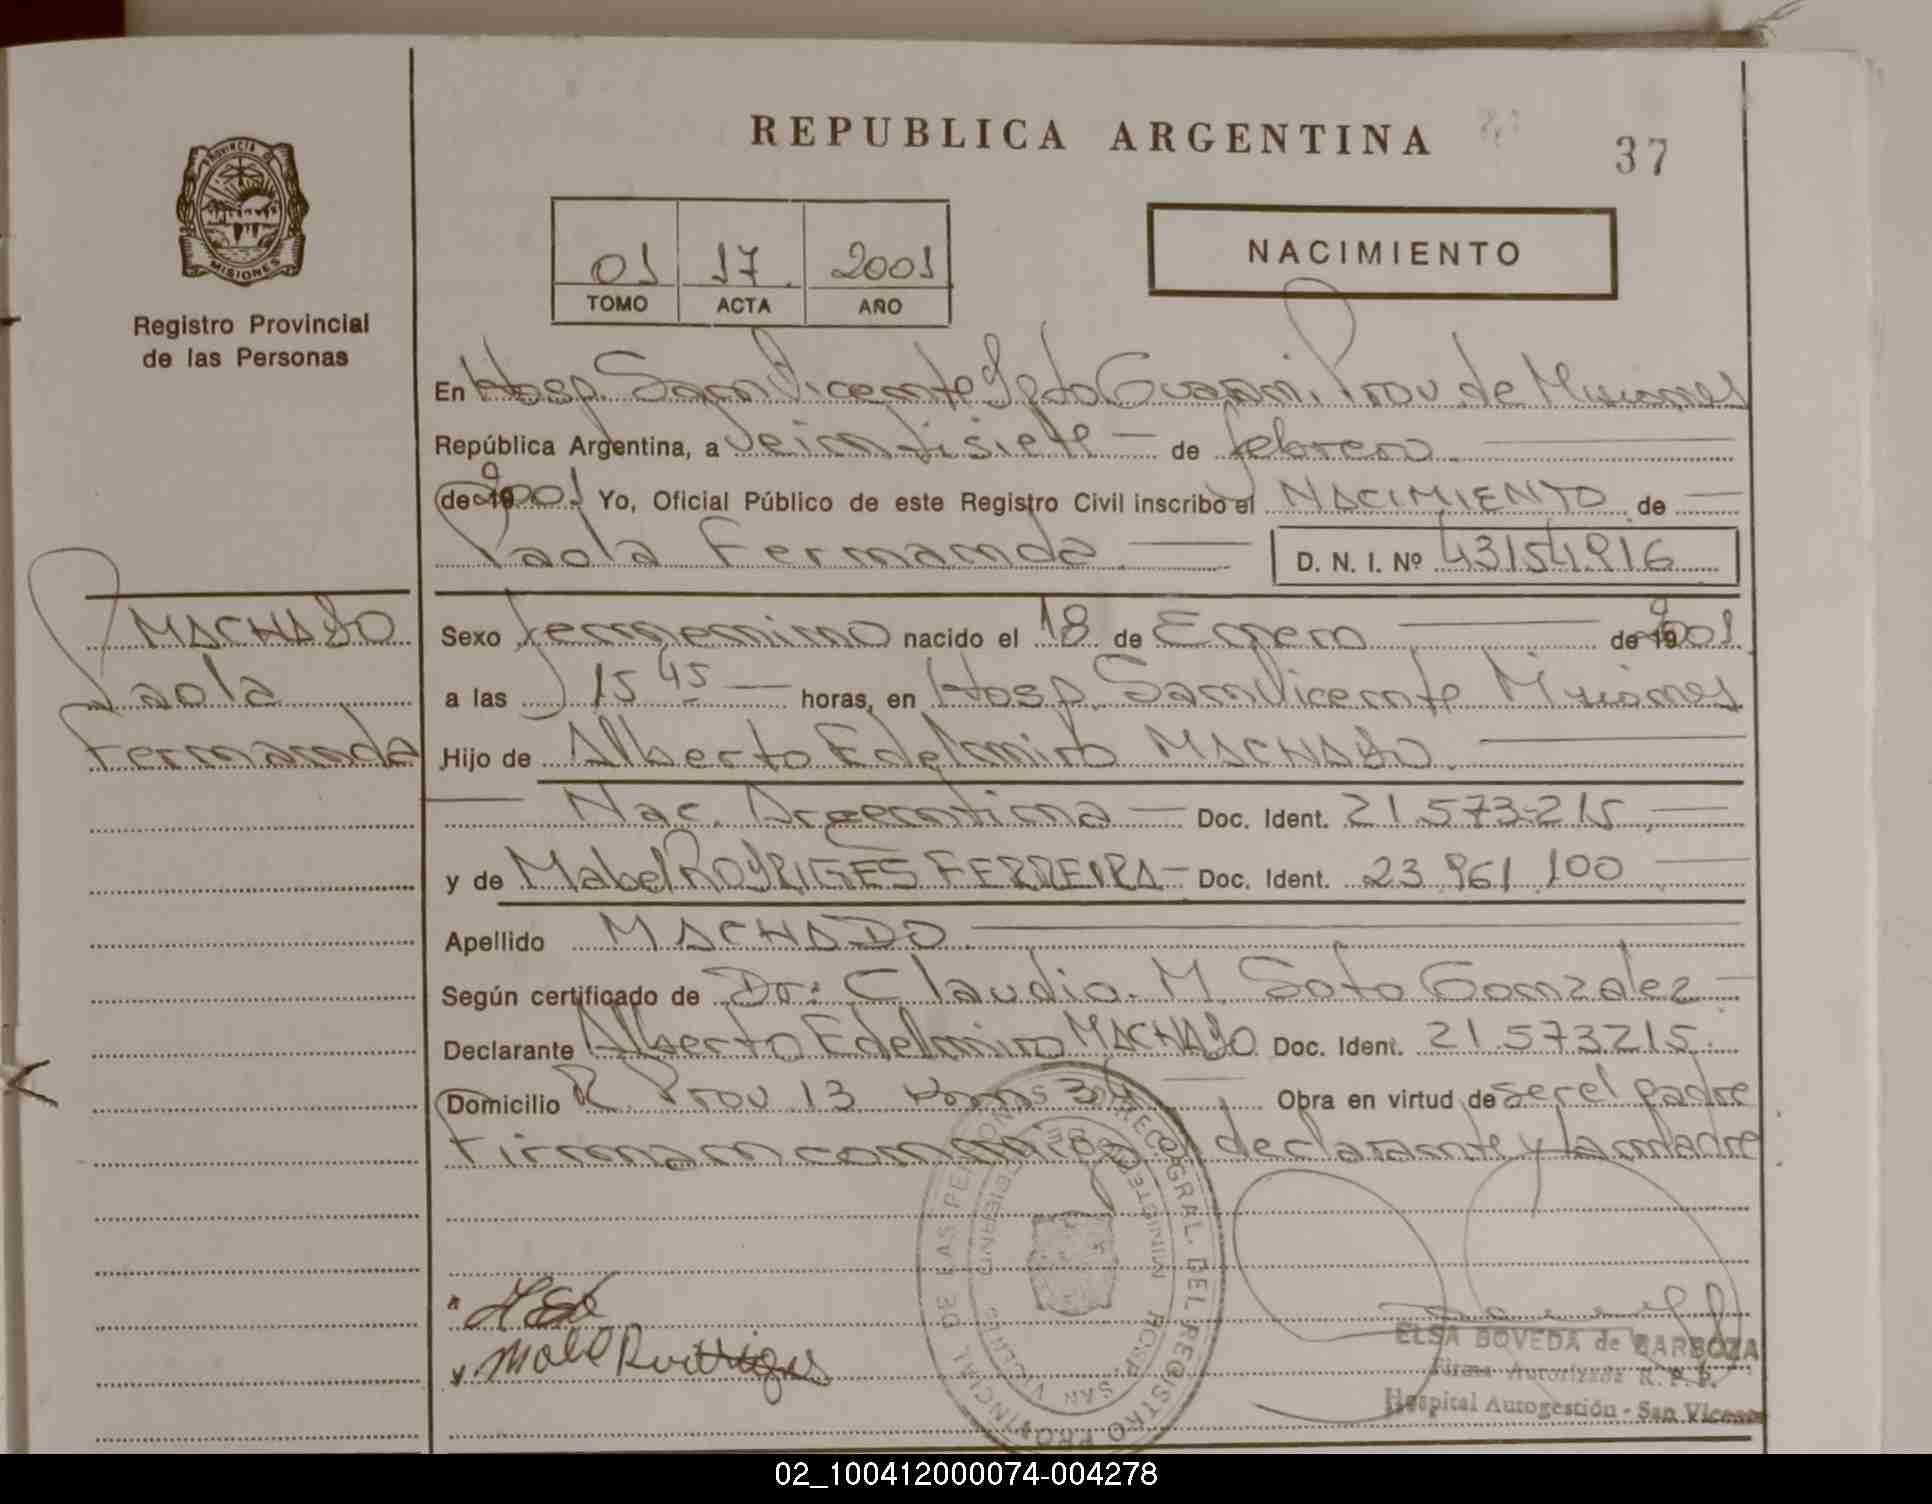 REPUBLICA ARGENTINA
37
PROVINCIA DE
MISIONES
Registro Provincial
de las Personas
01 17 2001
TOMO ACTA AÑO
NACIMIENTO
En Hosp. San Vicente Dpto Guarani. Prov de Misiones
República Argentina, a Veintisiete — de febrero
de 19 2001 Yo, Oficial Público de este Registro Civil inscribo el NACIMIENTO de
Paola Fernanda D. N. I. Nº 43154916
MACHADO
Paola
Fernanda
Sexo femenino nacido el 18 de Enero de 19 2001
a las 15 45 — horas, en Hosp. San Vicente Misiones
Hijo de Alberto Edelmiro MACHADO.
Nac. Argentina — Doc. Ident. 21.573.215
y de Mabel RODRIGES FERREIRA — Doc. Ident. 23.961.100
Apellido MACHADO
Según certificado de Dr: Claudio. M. Soto Gonzalez
Declarante Alberto Edelmiro MACHADO Doc. Ident. 21.573215.
Domicilio R. Prov 13 Obra en virtud de ser el padre
Firman conmigo el declarante y la madre
REGISTRO PROVINCIAL DE LAS PERSONAS
HOSP. SAN VICENTE
ELSA BOVEDA de BARBOZA
Firma Autorizada R. P. P.
Hospital Autogestión - San Vicente
02_100412000074-004278